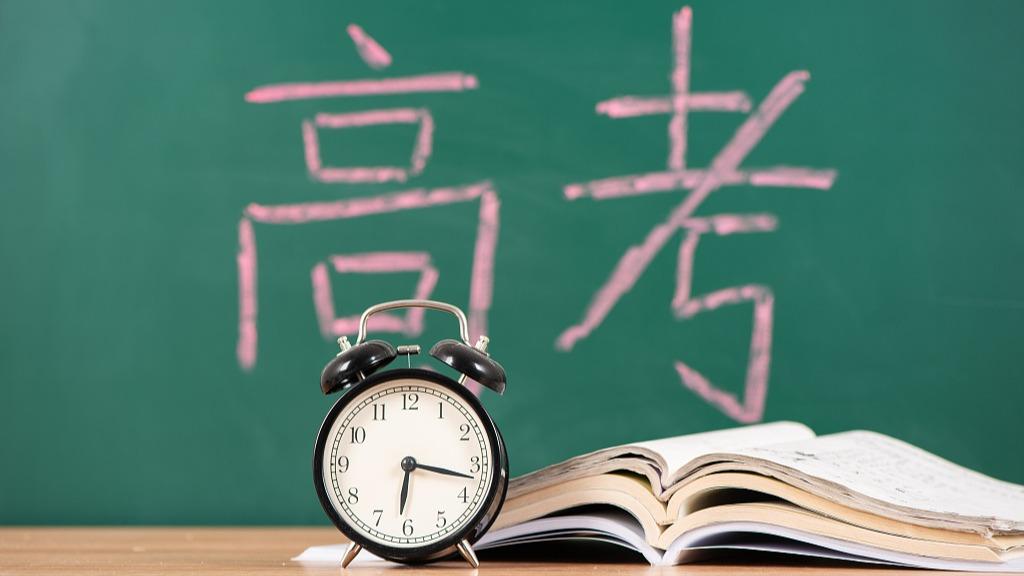 高考
12
1
2
3
4
5
6
7
8
9
10
11